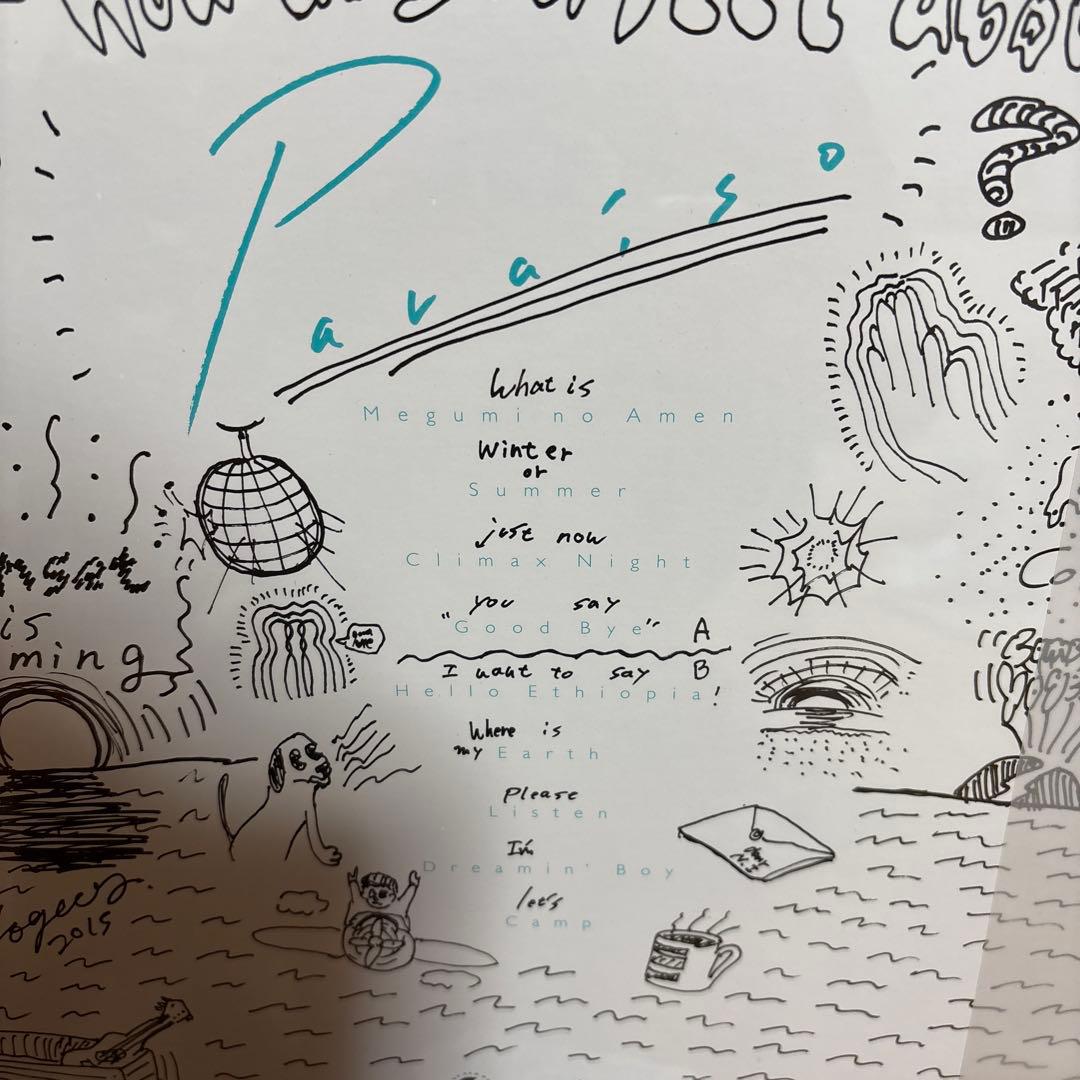 Paraiso
?
What is
Megumi no Amen
Winter
or
Summer
just now
Climax Night
you say
"Good Bye" A
I want to say B
Hello Ethiopia!
is
ming
Where is
my Earth
Please
Listen
I'm
Dreamin' Boy
let's
Camp
2015